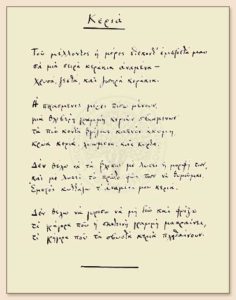 Κεριά
Τοῦ μέλλοντος ἡ μέρες στέκοντ' ἐμπροστά μας
σὰ μιὰ σειρὰ κεράκια ἀναμένα —
χρυσά, ζεστά, καὶ ζωηρὰ κεράκια.
Ἡ περασμένες μέρες πίσω μένουν,
μιὰ θλιβερὴ γραμμὴ κεριῶν σβυσμένων·
τὰ πιὸ κοντὰ βγάζουν καπνὸν ἀκόμη,
κρύα κεριά, λυωμένα, καὶ κυρτά.
Δὲν θέλω νὰ τὰ βλέπω· μὲ λυπεῖ ἡ μορφή των,
καὶ μὲ λυπεῖ τὸ πρῶτο φῶς των νὰ θυμοῦμαι.
Ἐμπρὸς κυττάζω τ' ἀναμένα μου κεριά.
Δὲν θέλω νὰ γυρίσω νὰ μὴ διῶ καὶ φρίξω
τί γρήγορα ποῦ ἡ σκοτεινὴ γραμμὴ μακραίνει,
τί γρήγορα ποῦ τὰ σβυστὰ κεριὰ πληθαίνουν.